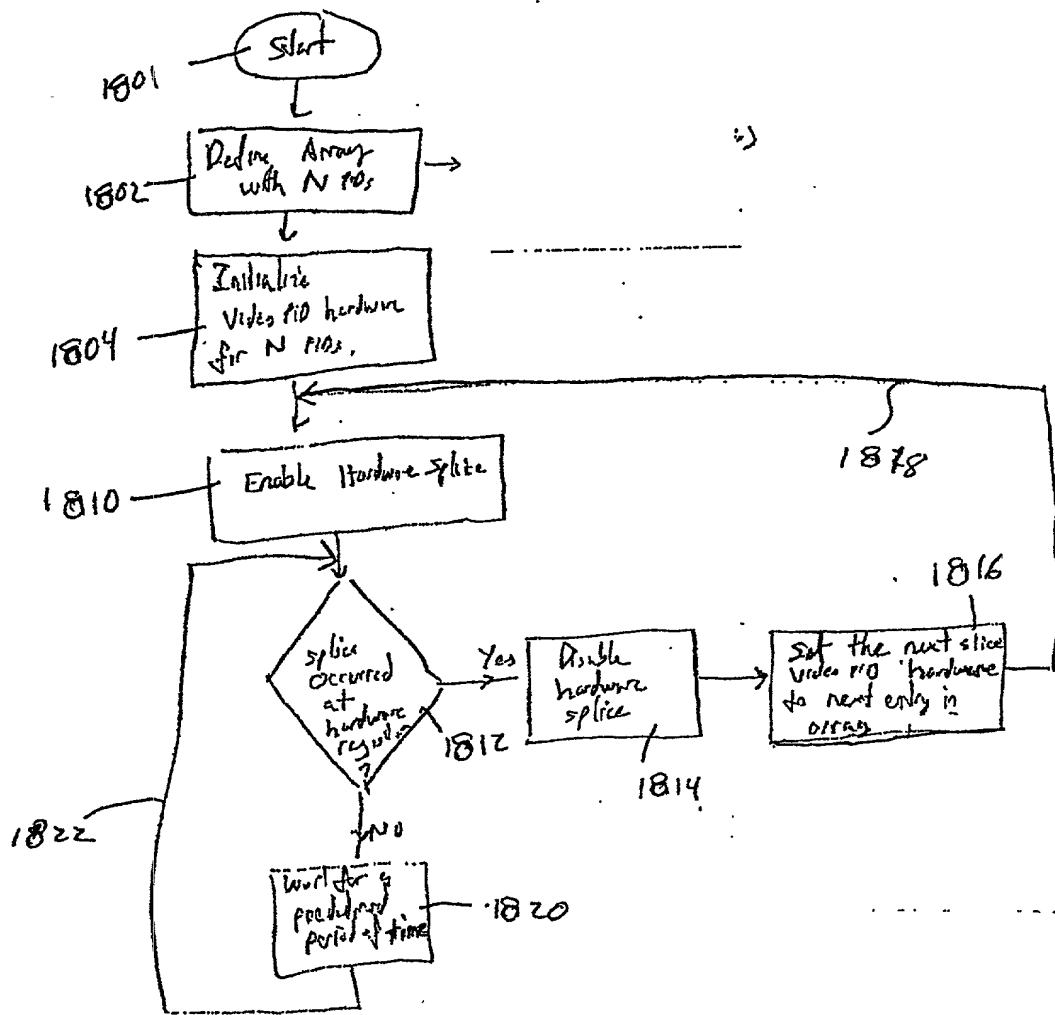 Start
1801
Define Array
with N PIDs
1802
Initialize
Video PID hardware
for N PIDs.
1804
1878
Enable Hardware Splice
1810
1816
splice
occurred
at
hardware
?
Yes
1812
Disable
hardware
splice
1814
Set the next slice
video PID hardware
to next entry in
array
1822
No
wait for a
period of time
1820